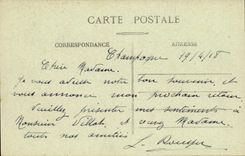 CARTE POSTALE
CORRESPONDANCE
ADRESSE
Champagne 19/4/18
Chère Madame.
Je vous adresse notre bon souvenir et
vous annonce mon prochain retour
Veuillez présenter mes sentiments à
Monsieur Villate et vous Madame
toutes nos amitiés